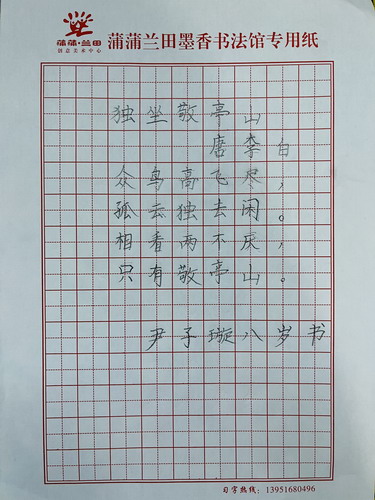 蒲蒲·兰田
创意美术中心
蒲蒲兰田墨香书法馆专用纸
独坐敬亭山
唐李白
众鸟高飞尽，
孤云独去闲。
相看两不厌，
只有敬亭山。
尹子璇八岁书
习字热线：13951680496